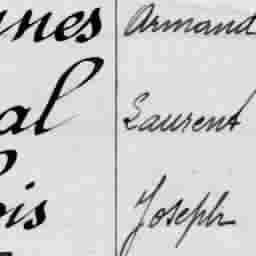 nes Armand
al Laurent
ois Joseph